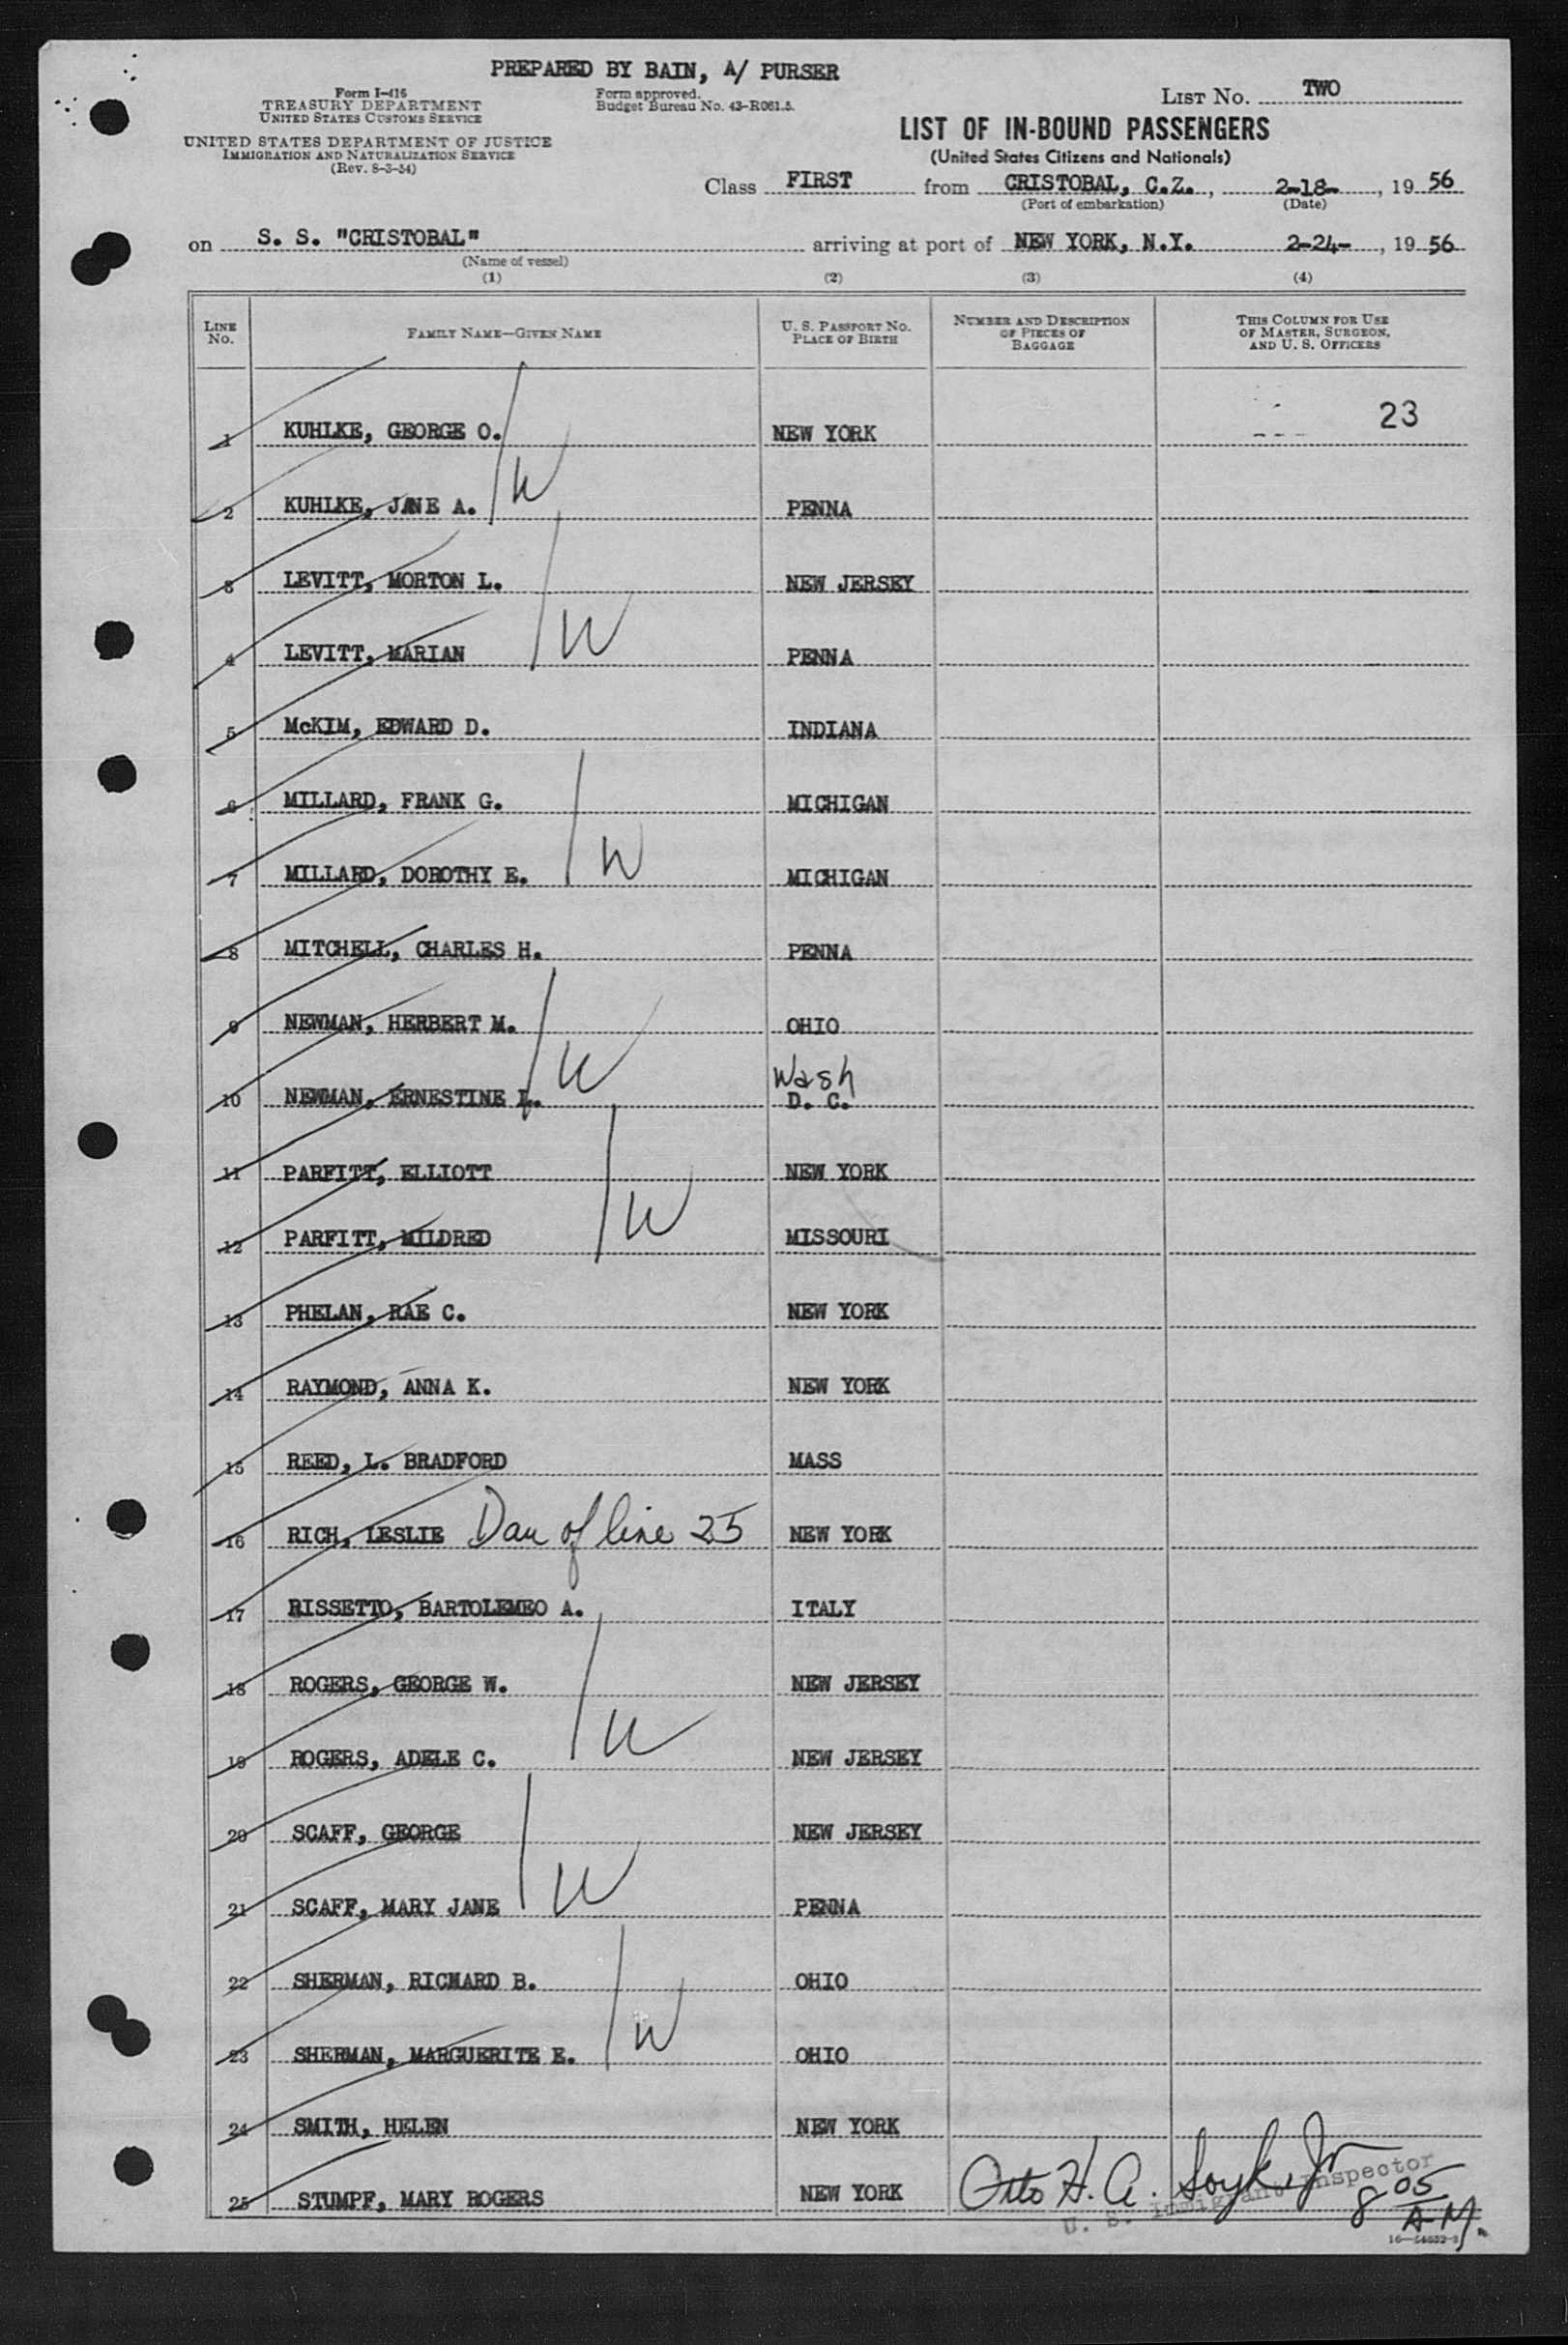 PREPARED BY BAIN, A/ PURSER
Form I-416
TREASURY DEPARTMENT
UNITED STATES CUSTOMS SERVICE
UNITED STATES DEPARTMENT OF JUSTICE
IMMIGRATION AND NATURALIZATION SERVICE
(Rev. 8-3-54)
Form approved.
Budget Bureau No. 43-R061.5.
LIST NO. TWO
LIST OF IN-BOUND PASSENGERS
(United States Citizens and Nationals)
Class FIRST from CRISTOBAL, C.Z., 2-18-, 19 56
(Port of embarkation) (Date)
on S. S. "CRISTOBAL" arriving at port of NEW YORK, N.Y. 2-24-, 19 56
(Name of vessel)
(1) (2) (3) (4)
LINE NO. FAMILY NAME—GIVEN NAME U. S. PASSPORT NO. PLACE OF BIRTH NUMBER AND DESCRIPTION OF PIECES OF BAGGAGE THIS COLUMN FOR USE OF MASTER, SURGEON, AND U. S. OFFICERS
1 KUHLKE, GEORGE O. NEW YORK 23
2 KUHLKE, JANE A. W PENNA
3 LEVITT, MORTON L. NEW JERSEY
4 LEVITT, MARIAN W PENNA
5 McKIM, EDWARD D. INDIANA
6 MILLARD, FRANK G. MICHIGAN
7 MILLARD, DOROTHY E. W MICHIGAN
8 MITCHELL, CHARLES H. PENNA
9 NEWMAN, HERBERT M. OHIO
10 NEWMAN, ERNESTINE L. W Wash D. C.
11 PARFITT, ELLIOTT NEW YORK
12 PARFITT, MILDRED W MISSOURI
13 PHELAN, RAE C. NEW YORK
14 RAYMOND, ANNA K. NEW YORK
15 REED, L. BRADFORD MASS
16 RICH, LESLIE Dau of line 25 NEW YORK
17 RISSETTO, BARTOLEMEO A. ITALY
18 ROGERS, GEORGE W. NEW JERSEY
19 ROGERS, ADELE C. W NEW JERSEY
20 SCAFF, GEORGE NEW JERSEY
21 SCAFF, MARY JANE W PENNA
22 SHERMAN, RICHARD B. OHIO
23 SHERMAN, MARGUERITE E. W OHIO
24 SMITH, HELEN NEW YORK
25 STUMPF, MARY ROGERS NEW YORK
Otto H. A. Soyk Jr
U. S. Immigrant Inspector
8 05 A.M.